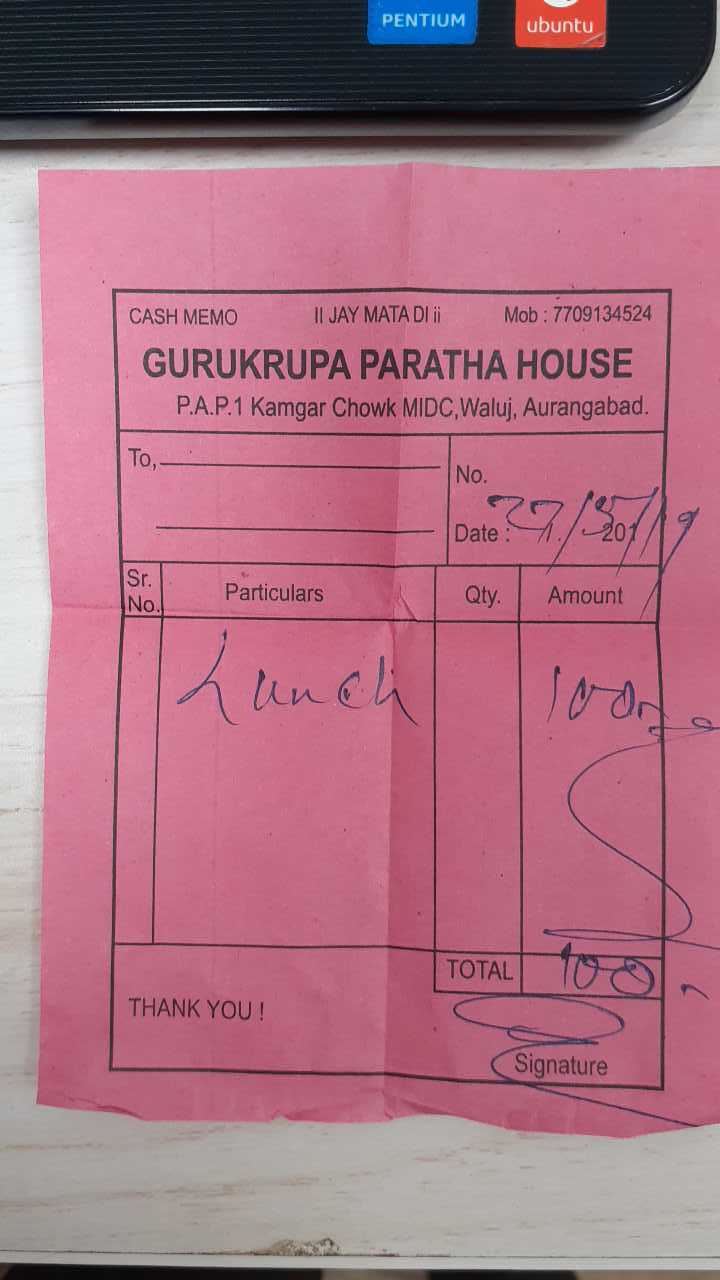 PENTIUM
ubuntu
CASH MEMO II JAY MATA DI ii Mob : 7709134524
GURUKRUPA PARATHA HOUSE
P.A.P.1 Kamgar Chowk MIDC,Waluj, Aurangabad.
To,
No.
Date : 27/5/19 201
Sr. No. Particulars Qty. Amount
Lunch 100
TOTAL 100
THANK YOU !
Signature